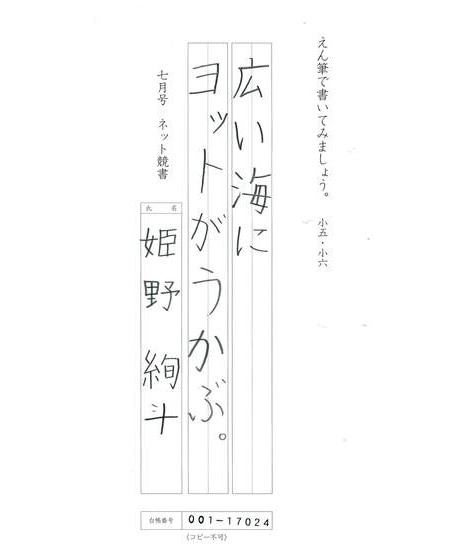 えん筆で書いてみましょう。 小五・小六
広い海に
ヨットがうかぶ。
七月号 ネット競書
氏名
姫野 絢斗
台帳番号 001-17024
(コピー不可)